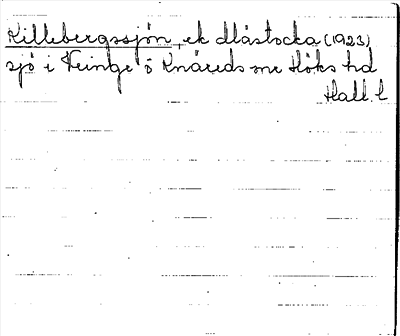 Killebergssjön, ek dlåstocka (1923)
sjö i Veinge o Knäreds snr Höks hd
Hall. l